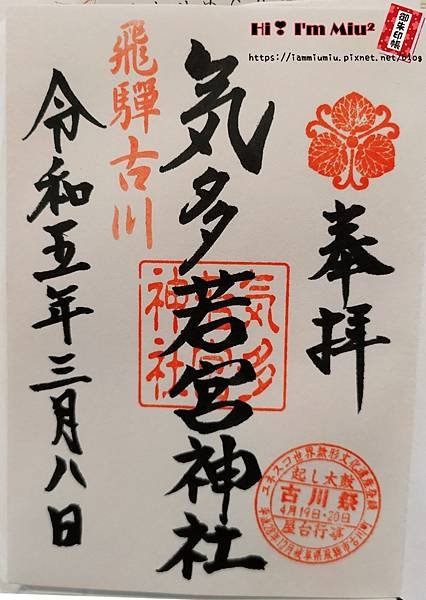 Hi❣ I'm Miu²
https://iammiumiu.pixnet.net/blog
御朱印帳
奉拝
飛驒古川
気多若宮神社
令和五年三月八日
気多
若宮
神社
ユネスコ世界無形文化遺産登録
起し太鼓
古川祭
4月19日・20日
屋台行事
平成28年12月岐阜県飛騨市古川町